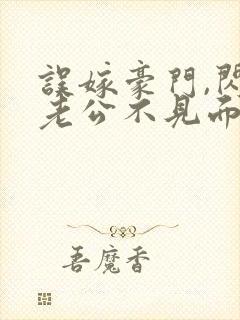 誤嫁豪門,閃
老公不見而
吾魔香